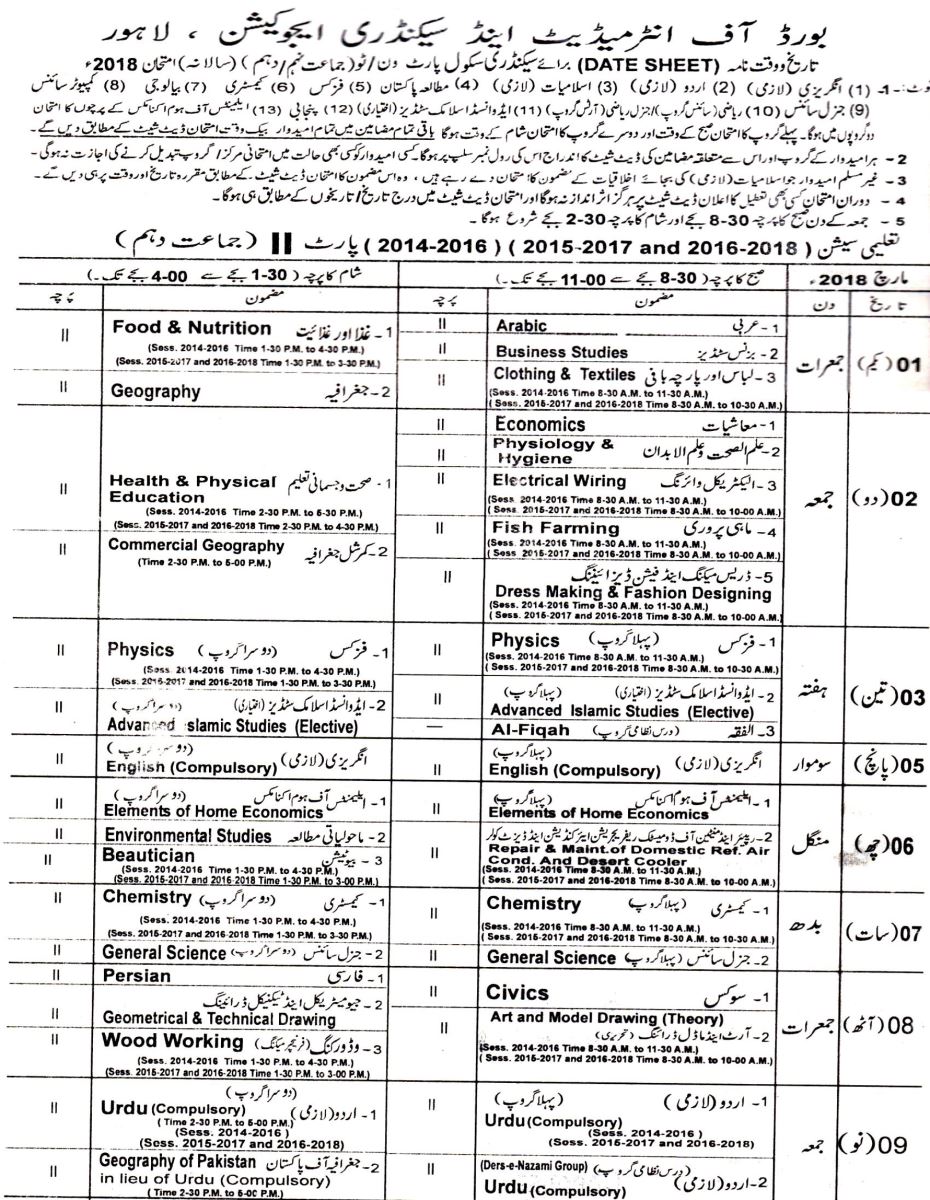 بورڈ آف انٹرمیڈیٹ اینڈ سیکنڈری ایجوکیشن ، لاہور
تاریخ و وقت نامہ (DATE SHEET) برائے سیکنڈری سکول پارٹ ون/ٹو (جماعت نہم/دہم) (سالانہ) امتحان 2018ء
نوٹ:- 1- (1) انگریزی (لازمی) (2) اردو (لازمی) (3) اسلامیات (لازمی) (4) مطالعہ پاکستان (5) فزکس (6) کیمسٹری (7) بیالوجی (8) کمپیوٹر سائنس
(9) جنرل سائنس (10) ریاضی (سائنس گروپ)/جنرل ریاضی (آرٹس گروپ) (11) ایڈوانسڈ اسلامک سٹڈیز (اختیاری) (12) پنجابی (13) ایلیمنٹس آف ہوم اکنامکس کے پرچوں کا امتحان
دو گروپوں میں ہوگا۔ پہلے گروپ کا امتحان صبح کے وقت اور دوسرے گروپ کا امتحان شام کے وقت ہوگا باقی تمام مضامین میں تمام امیدوار بیک وقت امتحان ڈیٹ شیٹ کے مطابق دیں گے۔
2 - ہر امیدوار کے گروپ اور اس سے متعلقہ مضامین کی ڈیٹ شیٹ کا اندراج اس کی رول نمبر سلپ پر ہوگا۔ کسی امیدوار کو کسی بھی حالت میں امتحانی مرکز/گروپ تبدیل کرنے کی اجازت نہ ہوگی۔
3 - غیر مسلم امیدوار جو اسلامیات (لازمی) کی بجائے اخلاقیات کے مضمون کا امتحان دے رہے ہیں ، وہ اس مضمون کا امتحان ڈیٹ شیٹ کے مطابق مقررہ تاریخ اور وقت پر ہی دیں گے۔
4 - دوران امتحان کسی بھی تعطیل کا اعلان ڈیٹ شیٹ پر ہرگز اثر انداز نہ ہوگا اور امتحان ڈیٹ شیٹ میں درج تاریخ/تاریخوں کے مطابق ہی ہوگا۔
5 - جمعہ کے دن صبح کا پرچہ 30-8 بجے اور شام کا پرچہ 30-2 بجے شروع ہوگا۔
تعلیمی سیشن (2015-2017 and 2016-2018) (2014-2016) پارٹ II (جماعت دہم)
مارچ 2018ء
صبح کا پرچہ (30-8 بجے سے 00-11 بجے تک۔)
شام کا پرچہ (30-1 بجے سے 00-4 بجے تک۔)
تاریخ دن مضمون پرچہ مضمون پرچہ
01 (یکم) جمعرات
1- عربی Arabic II
2- بزنس سٹڈیز Business Studies II
3- لباس اور پارچہ بافی Clothing & Textiles II
(Sess. 2014-2016 Time 8-30 A.M. to 11-30 A.M.)
( Sess. 2015-2017 and 2016-2018 Time 8-30 A.M. to 10-30 A.M.)
1- غذا اور غذائیت Food & Nutrition II
(Sess. 2014-2016 Time 1-30 P.M. to 4-30 P.M.)
(Sess. 2015-2017 and 2016-2018 Time 1-30 P.M. to 3-30 P.M.)
2- جغرافیہ Geography II
02 (دو) جمعہ
1- معاشیات Economics II
2- علم الصحت و علم الابدان Physiology & Hygiene II
3- الیکٹریکل وائرنگ Electrical Wiring II
(Sess. 2014-2016 Time 8-30 A.M. to 11-30 A.M.)
( Sess. 2015-2017 and 2016-2018 Time 8-30 A.M. to 10-00 A.M.)
4- ماہی پروری Fish Farming II
(Sess. 2014-2016 Time 8-30 A.M. to 11-30 A.M.)
( Sess. 2015-2017 and 2016-2018 Time 8-30 A.M. to 10-00 A.M.)
5- ڈریس میکنگ اینڈ فیشن ڈیزائیننگ II
Dress Making & Fashion Designing
(Sess. 2014-2016 Time 8-30 A.M. to 11-30 A.M.)
( Sess. 2015-2017 and 2016-2018 Time 8-30 A.M. to 10-00 A.M.)
1- صحت و جسمانی تعلیم Health & Physical Education II
(Sess. 2014-2016 Time 2-30 P.M. to 5-30 P.M.)
(Sess. 2015-2017 and 2016-2018 Time 2-30 P.M. to 4-30 P.M.)
2- کمرشل جغرافیہ Commercial Geography II
(Time 2-30 P.M. to 5-00 P.M.)
03 (تین) ہفتہ
1- فزکس (پہلا گروپ) Physics II
(Sess. 2014-2016 Time 8-30 A.M. to 11-30 A.M.)
( Sess. 2015-2017 and 2016-2018 Time 8-30 A.M. to 10-30 A.M.)
2- ایڈوانسڈ اسلامک سٹڈیز (اختیاری) (پہلا گروپ) II
Advanced Islamic Studies (Elective)
3- الفقہ (درس نظامی گروپ) Al-Fiqah —
1- فزکس (دوسرا گروپ) Physics II
(Sess. 2014-2016 Time 1-30 P.M. to 4-30 P.M.)
(Sess. 2015-2017 and 2016-2018 Time 1-30 P.M. to 3-30 P.M.)
2- ایڈوانسڈ اسلامک سٹڈیز (اختیاری) (دوسرا گروپ) II
Advanced Islamic Studies (Elective)
05 (پانچ) سوموار
انگریزی (لازمی) (پہلا گروپ) English (Compulsory) II
انگریزی (لازمی) (دوسرا گروپ) English (Compulsory) II
06 (چھ) منگل
1- ایلیمنٹس آف ہوم اکنامکس (پہلا گروپ)
Elements of Home Economics II
2- ریپئر اینڈ مینٹیننس آف ڈومیسٹک ریفریجریشن ایئر کنڈیشن اینڈ ڈیزرٹ کولر
Repair & Maint. of Domestic Ref. Air Cond. And Desert Cooler II
(Sess. 2014-2016 Time 8-30 A.M. to 11-30 A.M.)
( Sess. 2015-2017 and 2016-2018 Time 8-30 A.M. to 10-00 A.M.)
1- ایلیمنٹس آف ہوم اکنامکس (دوسرا گروپ)
Elements of Home Economics II
2- ماحولیاتی مطالعہ Environmental Studies II
3- بیوٹیشن Beautician II
(Sess. 2014-2016 Time 1-30 P.M. to 4-30 P.M.)
(Sess. 2015-2017 and 2016-2018 Time 1-30 P.M. to 3-00 P.M.)
07 (سات) بدھ
1- کیمسٹری (پہلا گروپ) Chemistry II
(Sess. 2014-2016 Time 8-30 A.M. to 11-30 A.M.)
( Sess. 2015-2017 and 2016-2018 Time 8-30 A.M. to 10-30 A.M.)
2- جنرل سائنس (پہلا گروپ) General Science II
1- کیمسٹری (دوسرا گروپ) Chemistry II
(Sess. 2014-2016 Time 1-30 P.M. to 4-30 P.M.)
(Sess. 2015-2017 and 2016-2018 Time 1-30 P.M. to 3-30 P.M.)
2- جنرل سائنس (دوسرا گروپ) General Science II
08 (آٹھ) جمعرات
1- سوکس Civics II
Art and Model Drawing (Theory) II
2- آرٹ اینڈ ماڈل ڈرائنگ (تحریری)
(Sess. 2014-2016 Time 8-30 A.M. to 11-30 A.M.)
(Sess. 2015-2017 and 2016-2018 Time 8-30 A.M. to 10-00 A.M.)
1- فارسی Persian II
2- جیومیٹریکل اینڈ ٹیکنیکل ڈرائینگ
Geometrical & Technical Drawing II
3- وڈ ورکنگ (فرنیچر میکنگ) Wood Working II
(Sess. 2014-2016 Time 1-30 P.M. to 4-30 P.M.)
(Sess. 2015-2017 and 2016-2018 Time 1-30 P.M. to 3-00 P.M.)
09 (نو) جمعہ
1- اردو (لازمی) (پہلا گروپ) II
Urdu (Compulsory)
(Sess. 2014-2016 )
(Sess. 2015-2017 and 2016-2018)
(Ders-e-Nazami Group) (درس نظامی گروپ) II
2- اردو (لازمی) Urdu (Compulsory)
(دوسرا گروپ)
1- اردو (لازمی) Urdu (Compulsory) II
( Time 2-30 P.M. to 5-00 P.M.)
(Sess. 2014-2016 )
(Sess. 2015-2017 and 2016-2018)
2- جغرافیہ آف پاکستان Geography of Pakistan II
in lieu of Urdu (Compulsory)
( Time 2-30 P.M. to 5-00 P.M.)